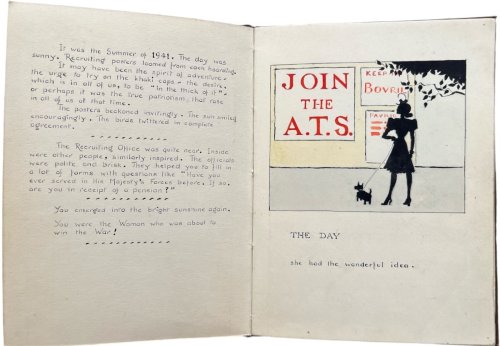 It was the Summer of 1941. The day was
sunny. Recruiting posters loomed from each hoarding.
It may have been the spirit of adventure -
the urge to try on the khaki caps - the desire,
which is in all of us, to be "in the thick of it" -
or perhaps it was the true patriotism, that rose
in all of us at that time.
The posters beckoned invitingly. The sun smiled
encouragingly. The birds twittered in complete
agreement.
The Recruiting Office was quite near. Inside
were other people, similarly inspired. The officials
were polite and brisk. They helped you to fill in
a lot of forms with questions like "Have you
ever served in His Majesty's Forces before. If so,
are you in receipt of a pension?"
You emerged into the bright sunshine again.
You were the Woman who was about to
win the War!
JOIN
THE
A.T.S.
KEEP
BOVRIL
THE DAY
she had the wonderful idea.